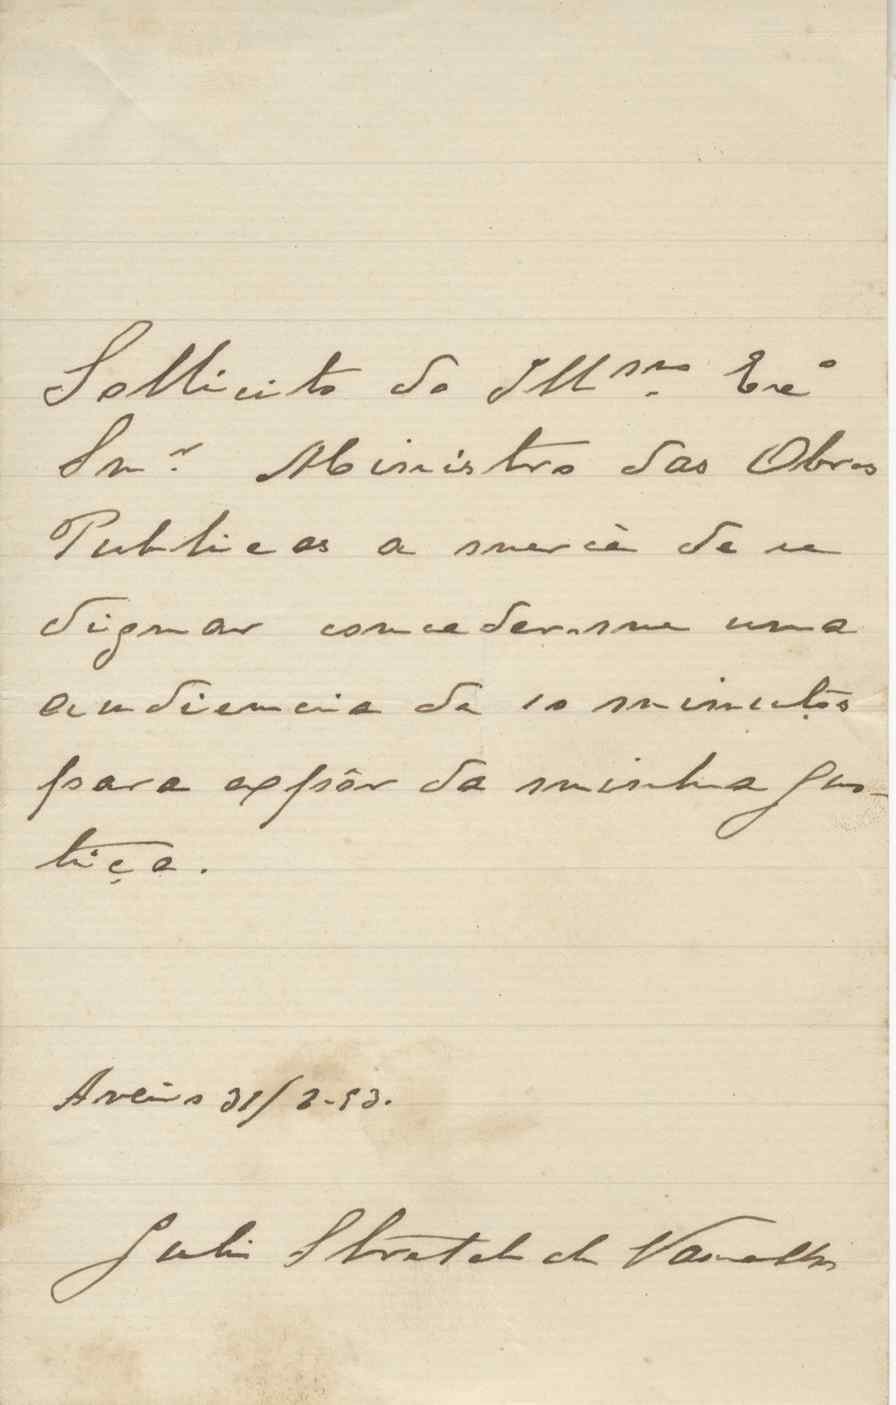 Sollicito do Ill^mo. Exc^o
Sn^r. Ministro das Obras
Publicas a mercê de se
dignar conceder-me uma
audiencia de 10 minutos
para expôr da minha jus-
tiça.
Aveiro 31/3-93.
Julio Stratch de Vasconcellos